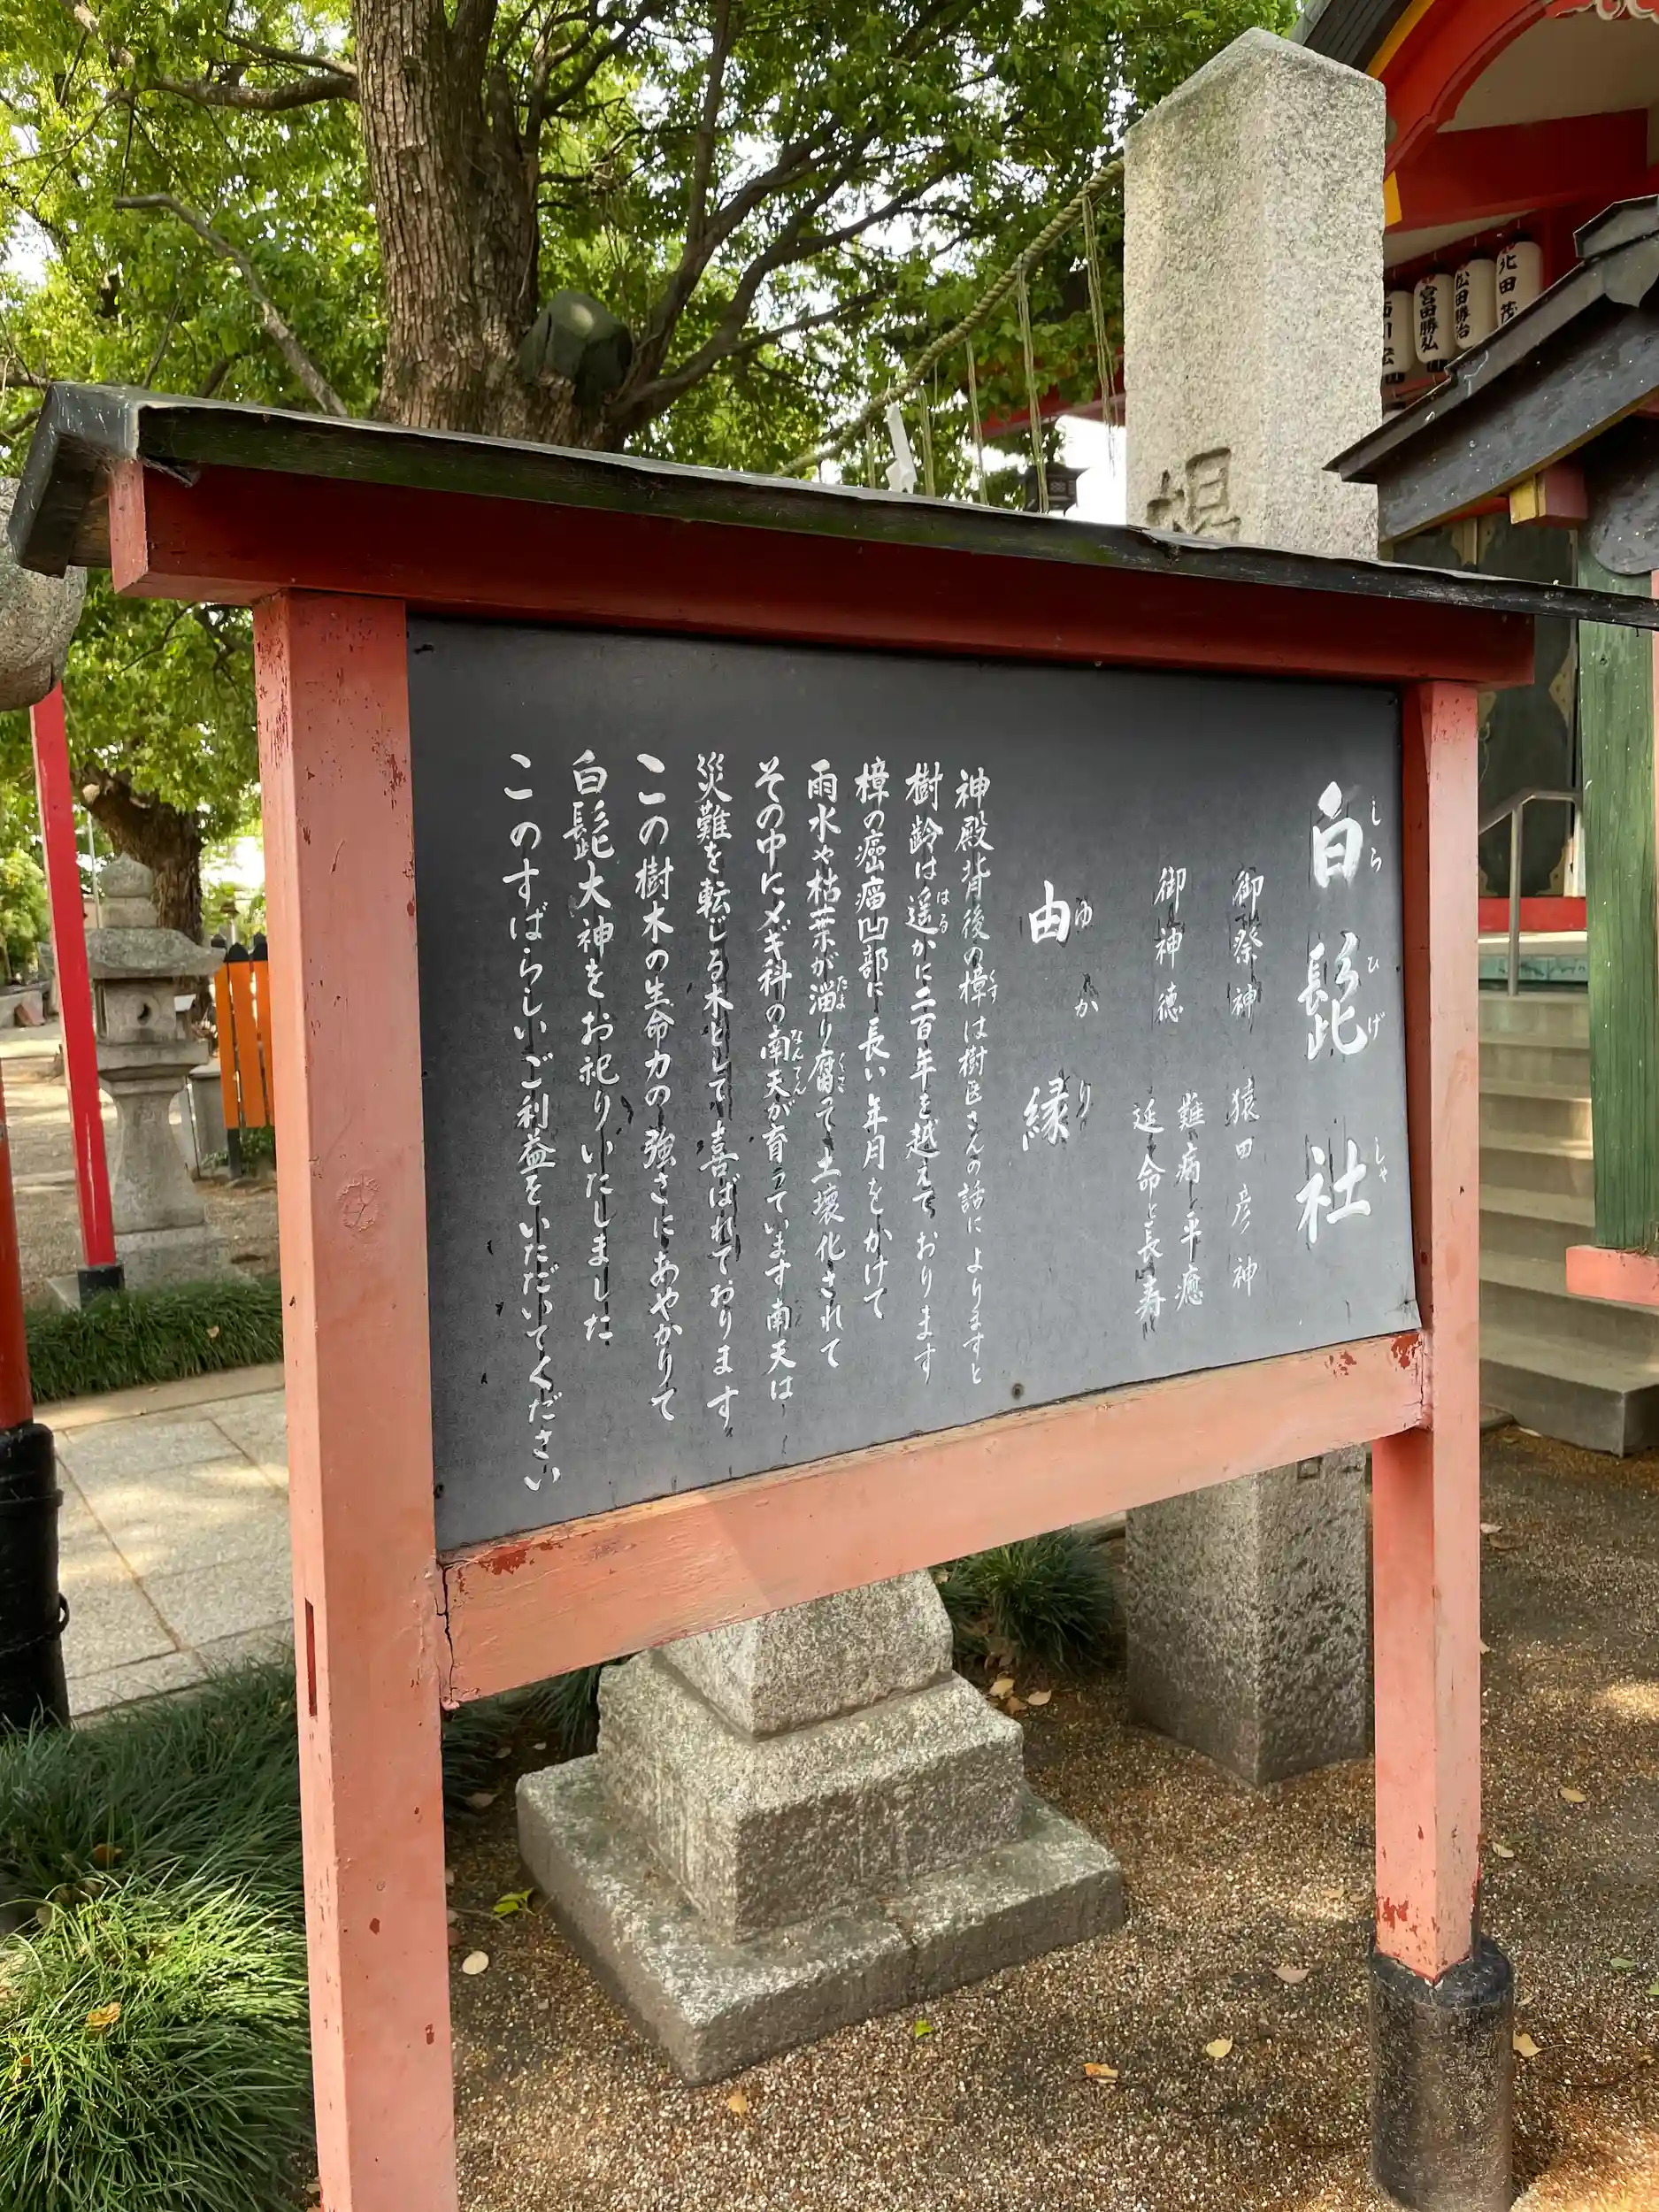 白髭社
しらひげしゃ
御祭神 猿田彦神
御神徳 難病と平癒
延命と長寿
由縁
ゆかり
神殿背後の樟は樹医さんの話によりますと
くす
樹齢は遥かに二百年を越えております
はる
樟の癌瘤凹部に長い年月をかけて
雨水や枯葉が溜り腐って土壌化されて
たま
くさ
その中にメギ科の南天が育っています南天は
なんてん
災難を転じる木として喜ばれております
この樹木の生命力の強さにあやかりて
白髭大神をお祀りいたしました
このすばらしいご利益をいただいてください
北田茂
松田勝治
宮田勝弘